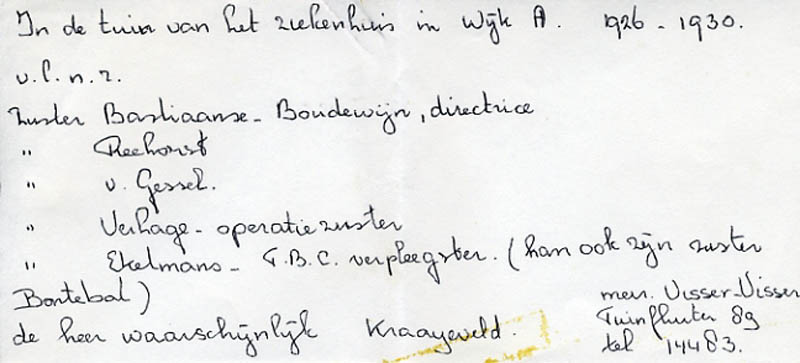 In de tuin van het ziekenhuis in Wijk A. 1926 - 1930.
v.l.n.r.
Zuster Bastiaanse - Boudewijn, directrice
" Reehorst
" v. Gessel.
" Verhage - operatiezuster
" Ekelmans - T.B.C. verpleegster. (kan ook zijn zuster
Bontebal)
de heer waarschijnlijk Kraayeveld.
mevr. Visser-Visser
Tuinfluiter 89
tel 14483.